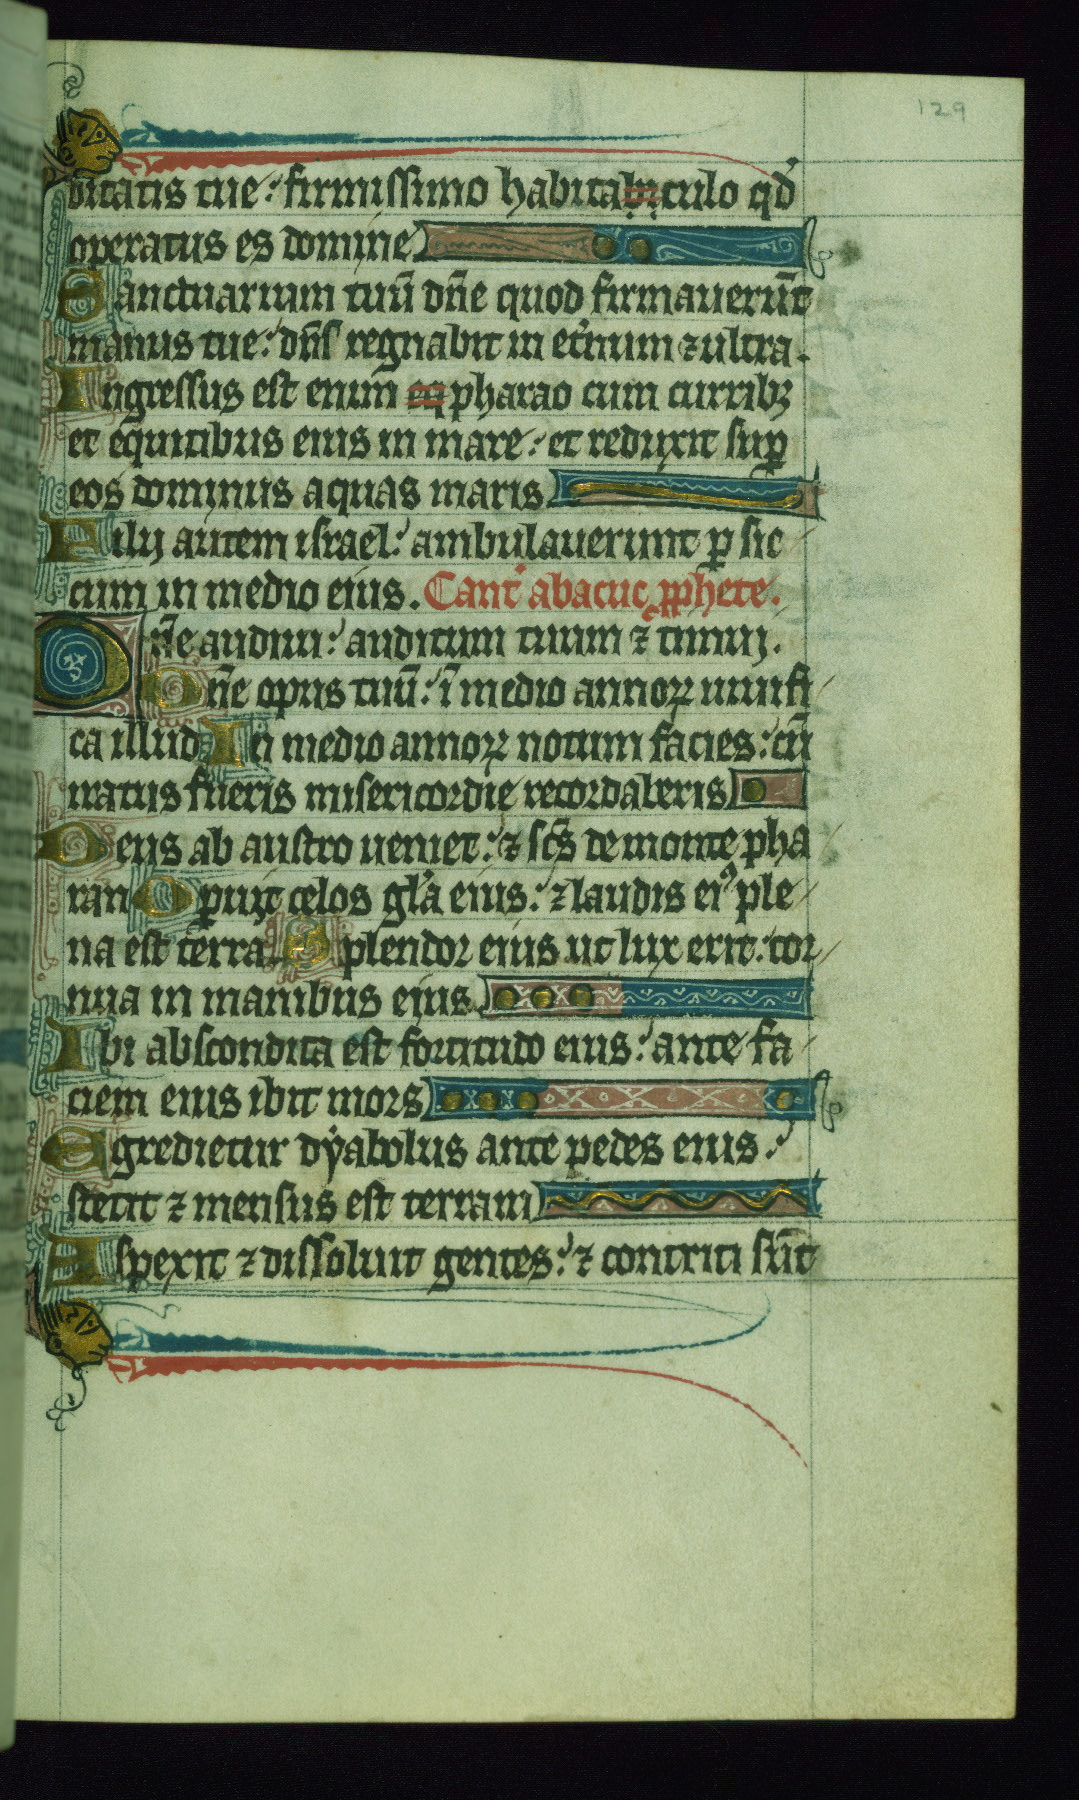 129
ditatis tue: firmissimo habitabiculo qd̓
operatus es domine
Sanctuarium tuū dn̄e quod firmauerūt
manus tue: dn̄s regnabit in et̓num ⁊ ultra.
Ingressus est enim eq pharao cum curribꝫ
et equitibus eius in mare: et reduxit suꝑ
eos dominus aquas maris
Filij autem israel: ambulauerunt ꝑ sic
cum in medio eius. Cant̓ abacuc ꝓphete.
Dn̄e audiui: auditum tuum ⁊ timui.
Dn̄e opus tuū: ī medio annoꝝ uiuifi
ca illud In medio annoꝝ notum facies: cū
iratus fueris misericordie recordaberis
Deus ab austro ueniet: ⁊ sc̄s de monte pha
ran Operuit celos gl̄a eius: ⁊ laudis eiꝰ ple
na est terra Splendor eius ut lux erit: cor
nua in manibus eius
Ibi abscondita est fortitudo eius: ante fa
ciem eius ibit mors
Egredietur dẏabolus ante pedes eius:
stetit ⁊ mensus est terram
Aspexit ⁊ dissoluit gentes: ⁊ contriti sūt